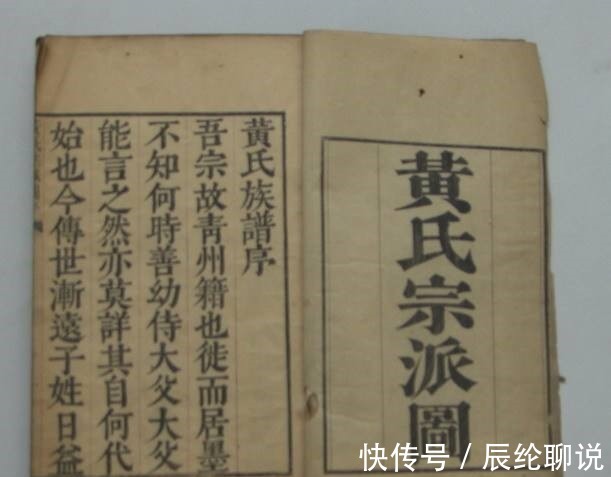 黃氏宗派圖
黃氏族譜序
吾宗故青州籍也徙而居墨
不知何時善幼侍大父大父
能言之然亦莫詳其自何代
始也今傳世漸遠子姓日益
快传号 / 辰纶聊说